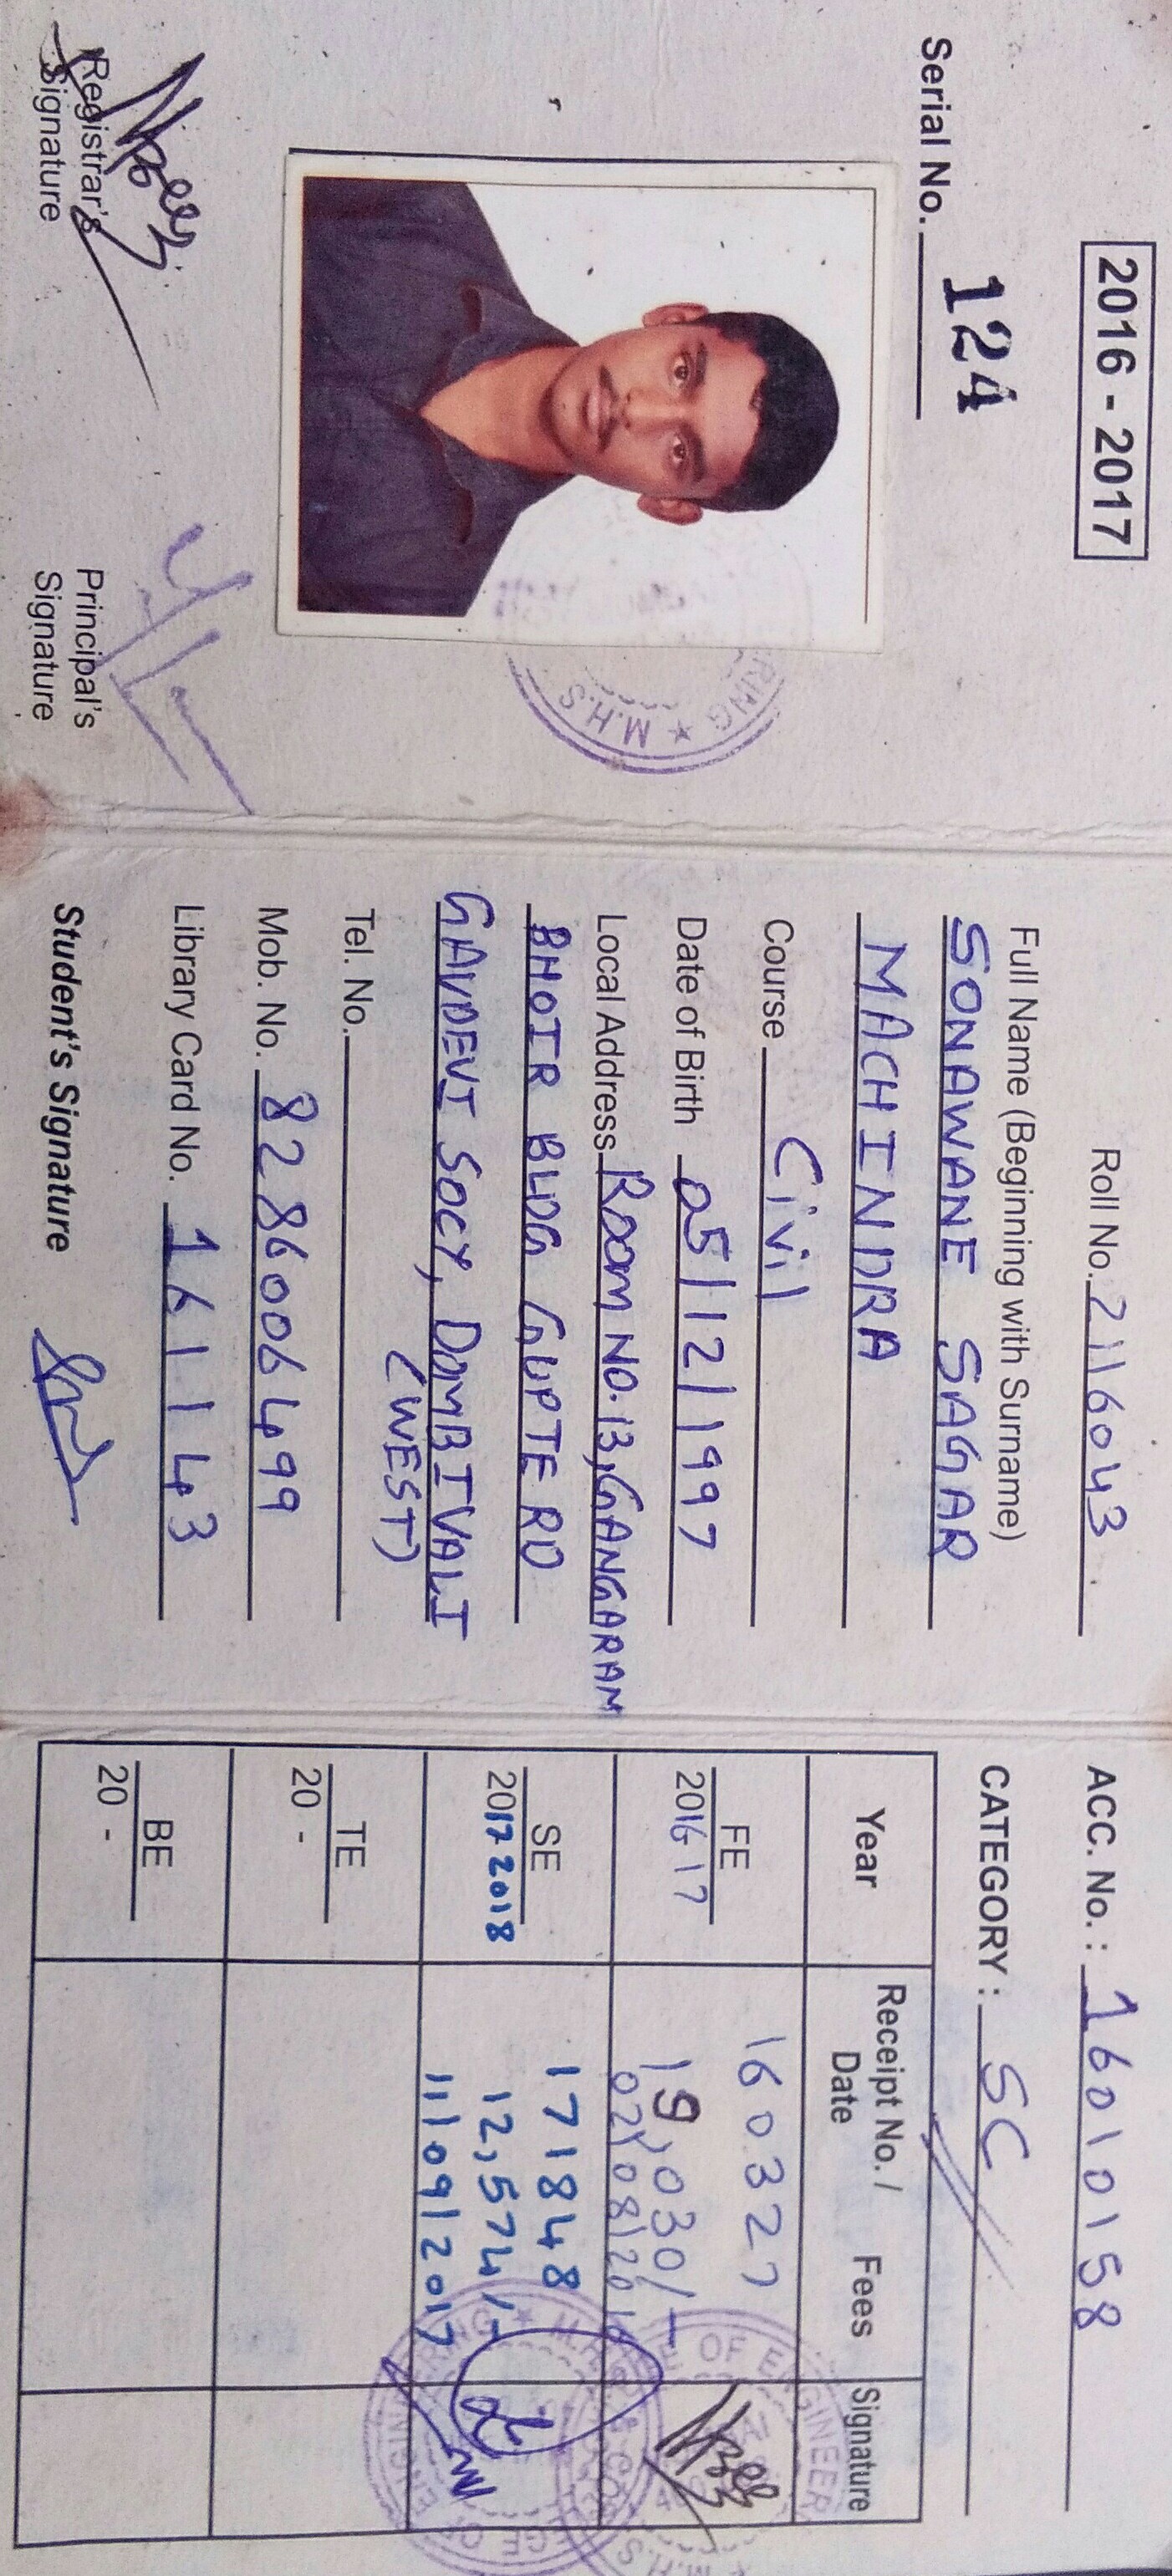 2016 - 2017
Serial No. 124
RING ★ M.H.S
Registrar's
Signature
Principal's
Signature
Roll No. 2116043
Full Name (Beginning with Surname)
SONAWANE SAGAR
MACHINDRA
Course Civil
Date of Birth 05/12/1997
Local Address Room NO.13, GANGARAM
BHOIR BLDG GUPTE RD
GAVDEVI SOCY, DOMBIVALI
(WEST)
Tel. No.
Mob. No. 8286006499
Library Card No. 161143
Student's Signature
ACC. No. : 16010158
CATEGORY : SC
Year Receipt No. / Date Fees Signature
FE
2016 17
160327
19,030/-
02/08/2016
SE
2017 2018
171848
12,574/-
11/09/2017
TE
20 -
BE
20 -